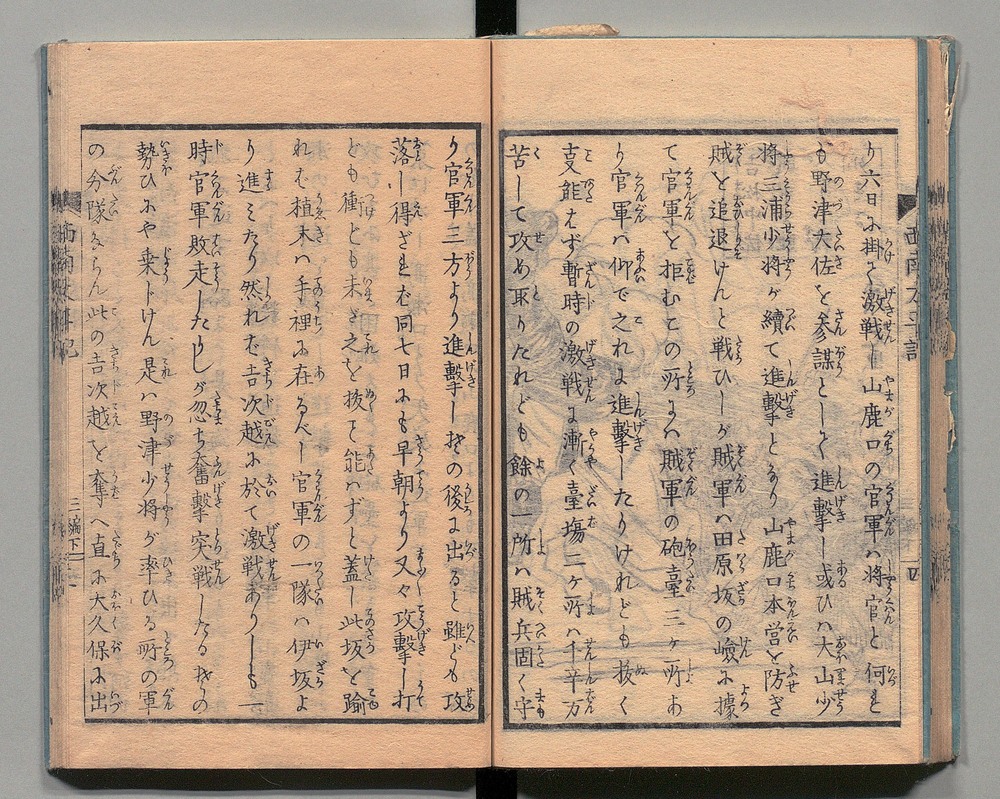 り六日に掛て激戦し山鹿口の官軍ハ将官と何れ
も野津大佐を参謀として進撃し或ひハ大山少
将三浦少将が續て進撃となり山鹿口本営を防ぎ
賊を追退けんと戦ひしが賊軍ハ田原坂の嶮に據
て官軍を拒むこの所にハ賊軍の砲臺三ヶ所あ
り官軍ハ仰で之れに進撃したりけれども抜く
支能はず暫時の激戦に漸く臺場二ヶ所ハ千辛万
苦して攻め取りたれども餘の一ヶ所ハ賊兵固く守
り官軍三方より進撃し其の後に出ると雖ども攻
落し得ざれバ同七日にも早朝より又々攻撃し打
ども衝ども未だ之を抜く能ハずと蓋し此坂を踰
れバ植木ハ手裡に在るべし官軍の一隊ハ伊坂よ
り進ミたり然れバ吉次越に於て激戦ありしも一
時官軍敗走したりしが忽ち奮撃突戦したる其の
勢ひにや乗じけん是ハ野津少将が率ひる所の軍
の分隊ならん此の吉次越を奪へ直に大久保に出
西南太平記
四
三編下